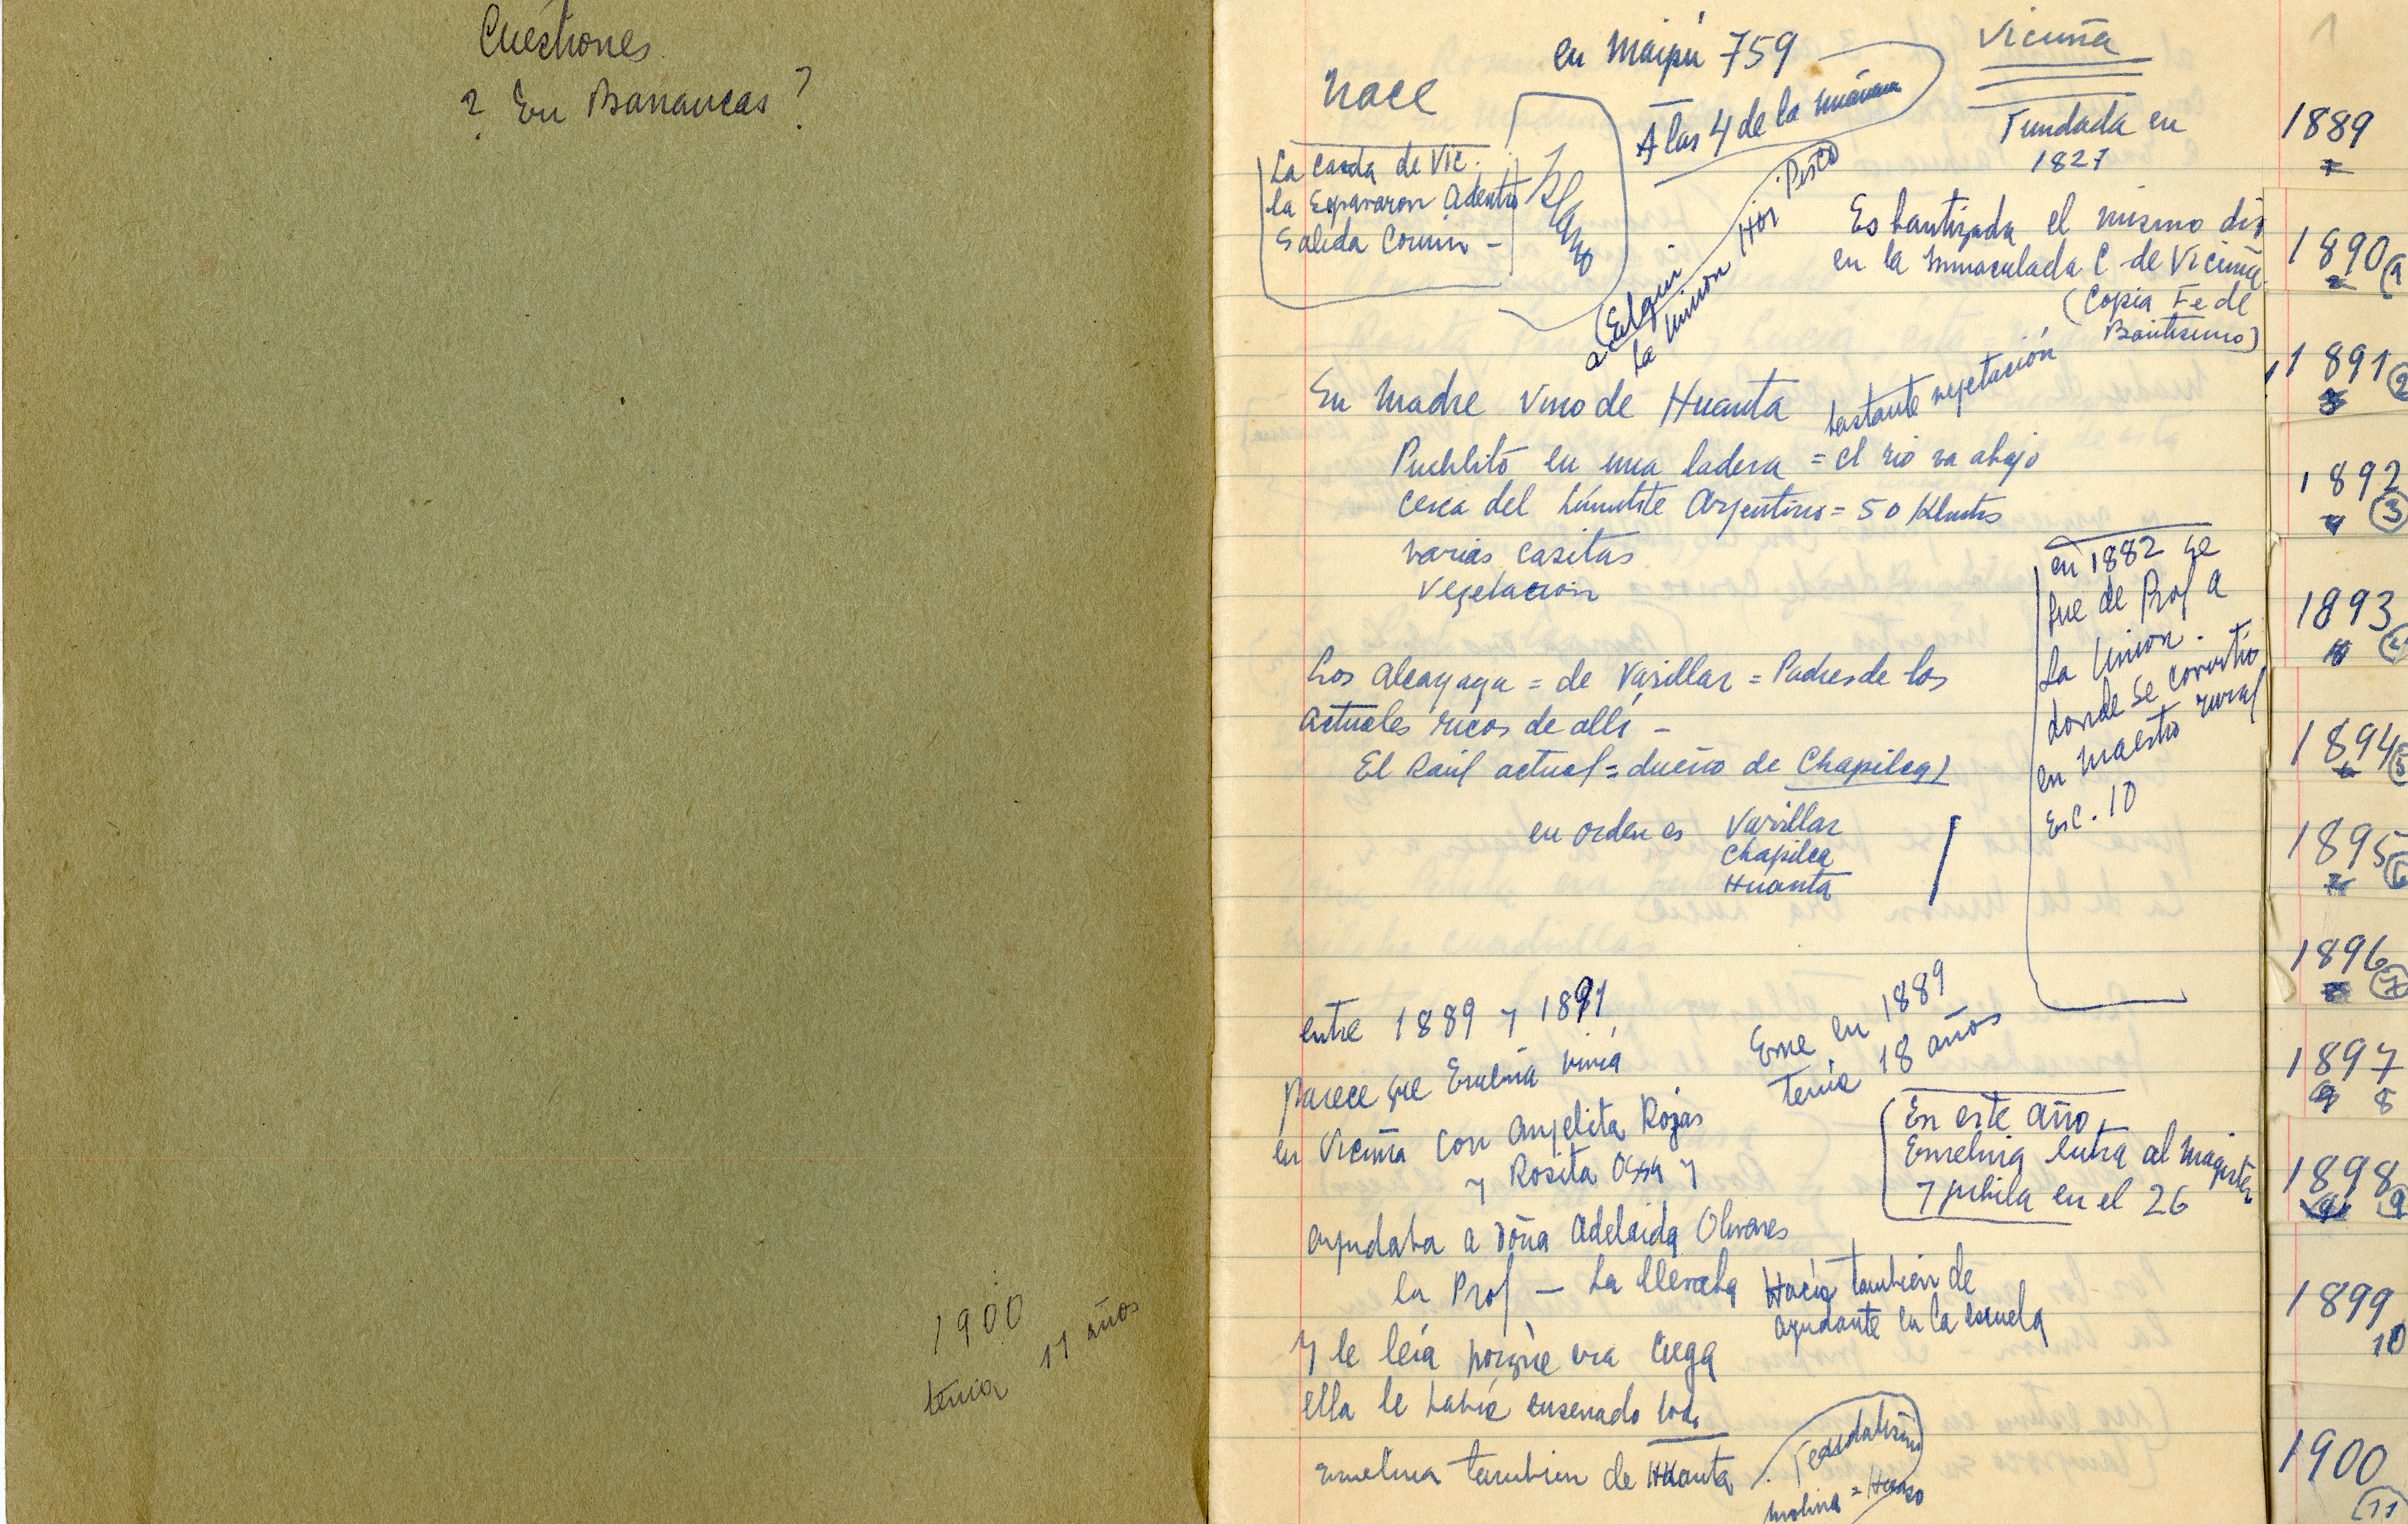 Cuestiones
? En Barrancas ?
1900
tenia 11 años
en Maipú 759
Vicuña
1
Nace
A las 4 de la mañana
Fundada en
1827
La casada de Vic.
la Esperaron adentro
Salida Común -
Es bautizada el mismo dia
en la Inmaculada C de Vicuña
(Copia Fe de
Bautismo)
(Elqui
La Union Hoi Pisco
Su Madre vino de Huanta
bastante vejetación
Pueblito en una ladera = el rio va abajo
cerca del Límite Argentino = 50 Klmts
varias casitas
Vegetacion
en 1882 se
fue de Prof a
La Union.
donde se convirtio
en maestro rural
Esc. 10
Los Alcayaga = de Varillar = Padres de los
actuales ricos de alli -
El Raúl actual = dueño de Chapilca)
en orden es Varillar
Chapilca
Huanta
entre 1889 y 1891
parece que Emelina vivia
en Vicuña con Anjelita Rojas
y Rosita Ossa y
Eme en 1889
tenia 18 años
En este año
Emelina entra al magister
y jubila en el 26
ayudaba a doña Adelaida Olivares
la Prof - La llevaba
Hacia tambien de
ayudante en la escuela
Y le leía porque era Ciega
ella le habia enseñado todo
Emelina tambien de Huanta
Molina =
1889
1890 (1
1891 (2
1892
(3
1893
(4
1894 (5
1895 (6
1896 (7
1897
8
1898
9
1899
10
1900
(11